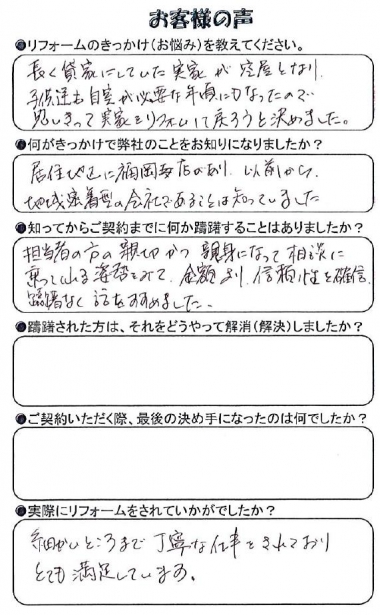 お客様の声
●リフォームのきっかけ(お悩み)を教えてください。
長く貸家にしていた実家が空屋となり、
子供達も自室が必要な年頃にもなったので
思いきって実家をリフォームして戻ろうと決めました。
●何がきっかけで弊社のことをお知りになりましたか?
居住地区に福岡支店があり、以前から、
地域密着型の会社であることは知っていました
●知ってからご契約までに何か躊躇することはありましたか?
担当者の方の親切かつ親身になって相談に
乗って下さる姿勢をみて、金額より、信頼性を確信
躊躇なく話をすすめました。
●躊躇された方は、それをどうやって解消(解決)しましたか?
●ご契約いただく際、最後の決め手になったのは何でしたか?
●実際にリフォームをされていかがでしたか?
細かいところまで丁寧な仕事をされており
とても満足しています。